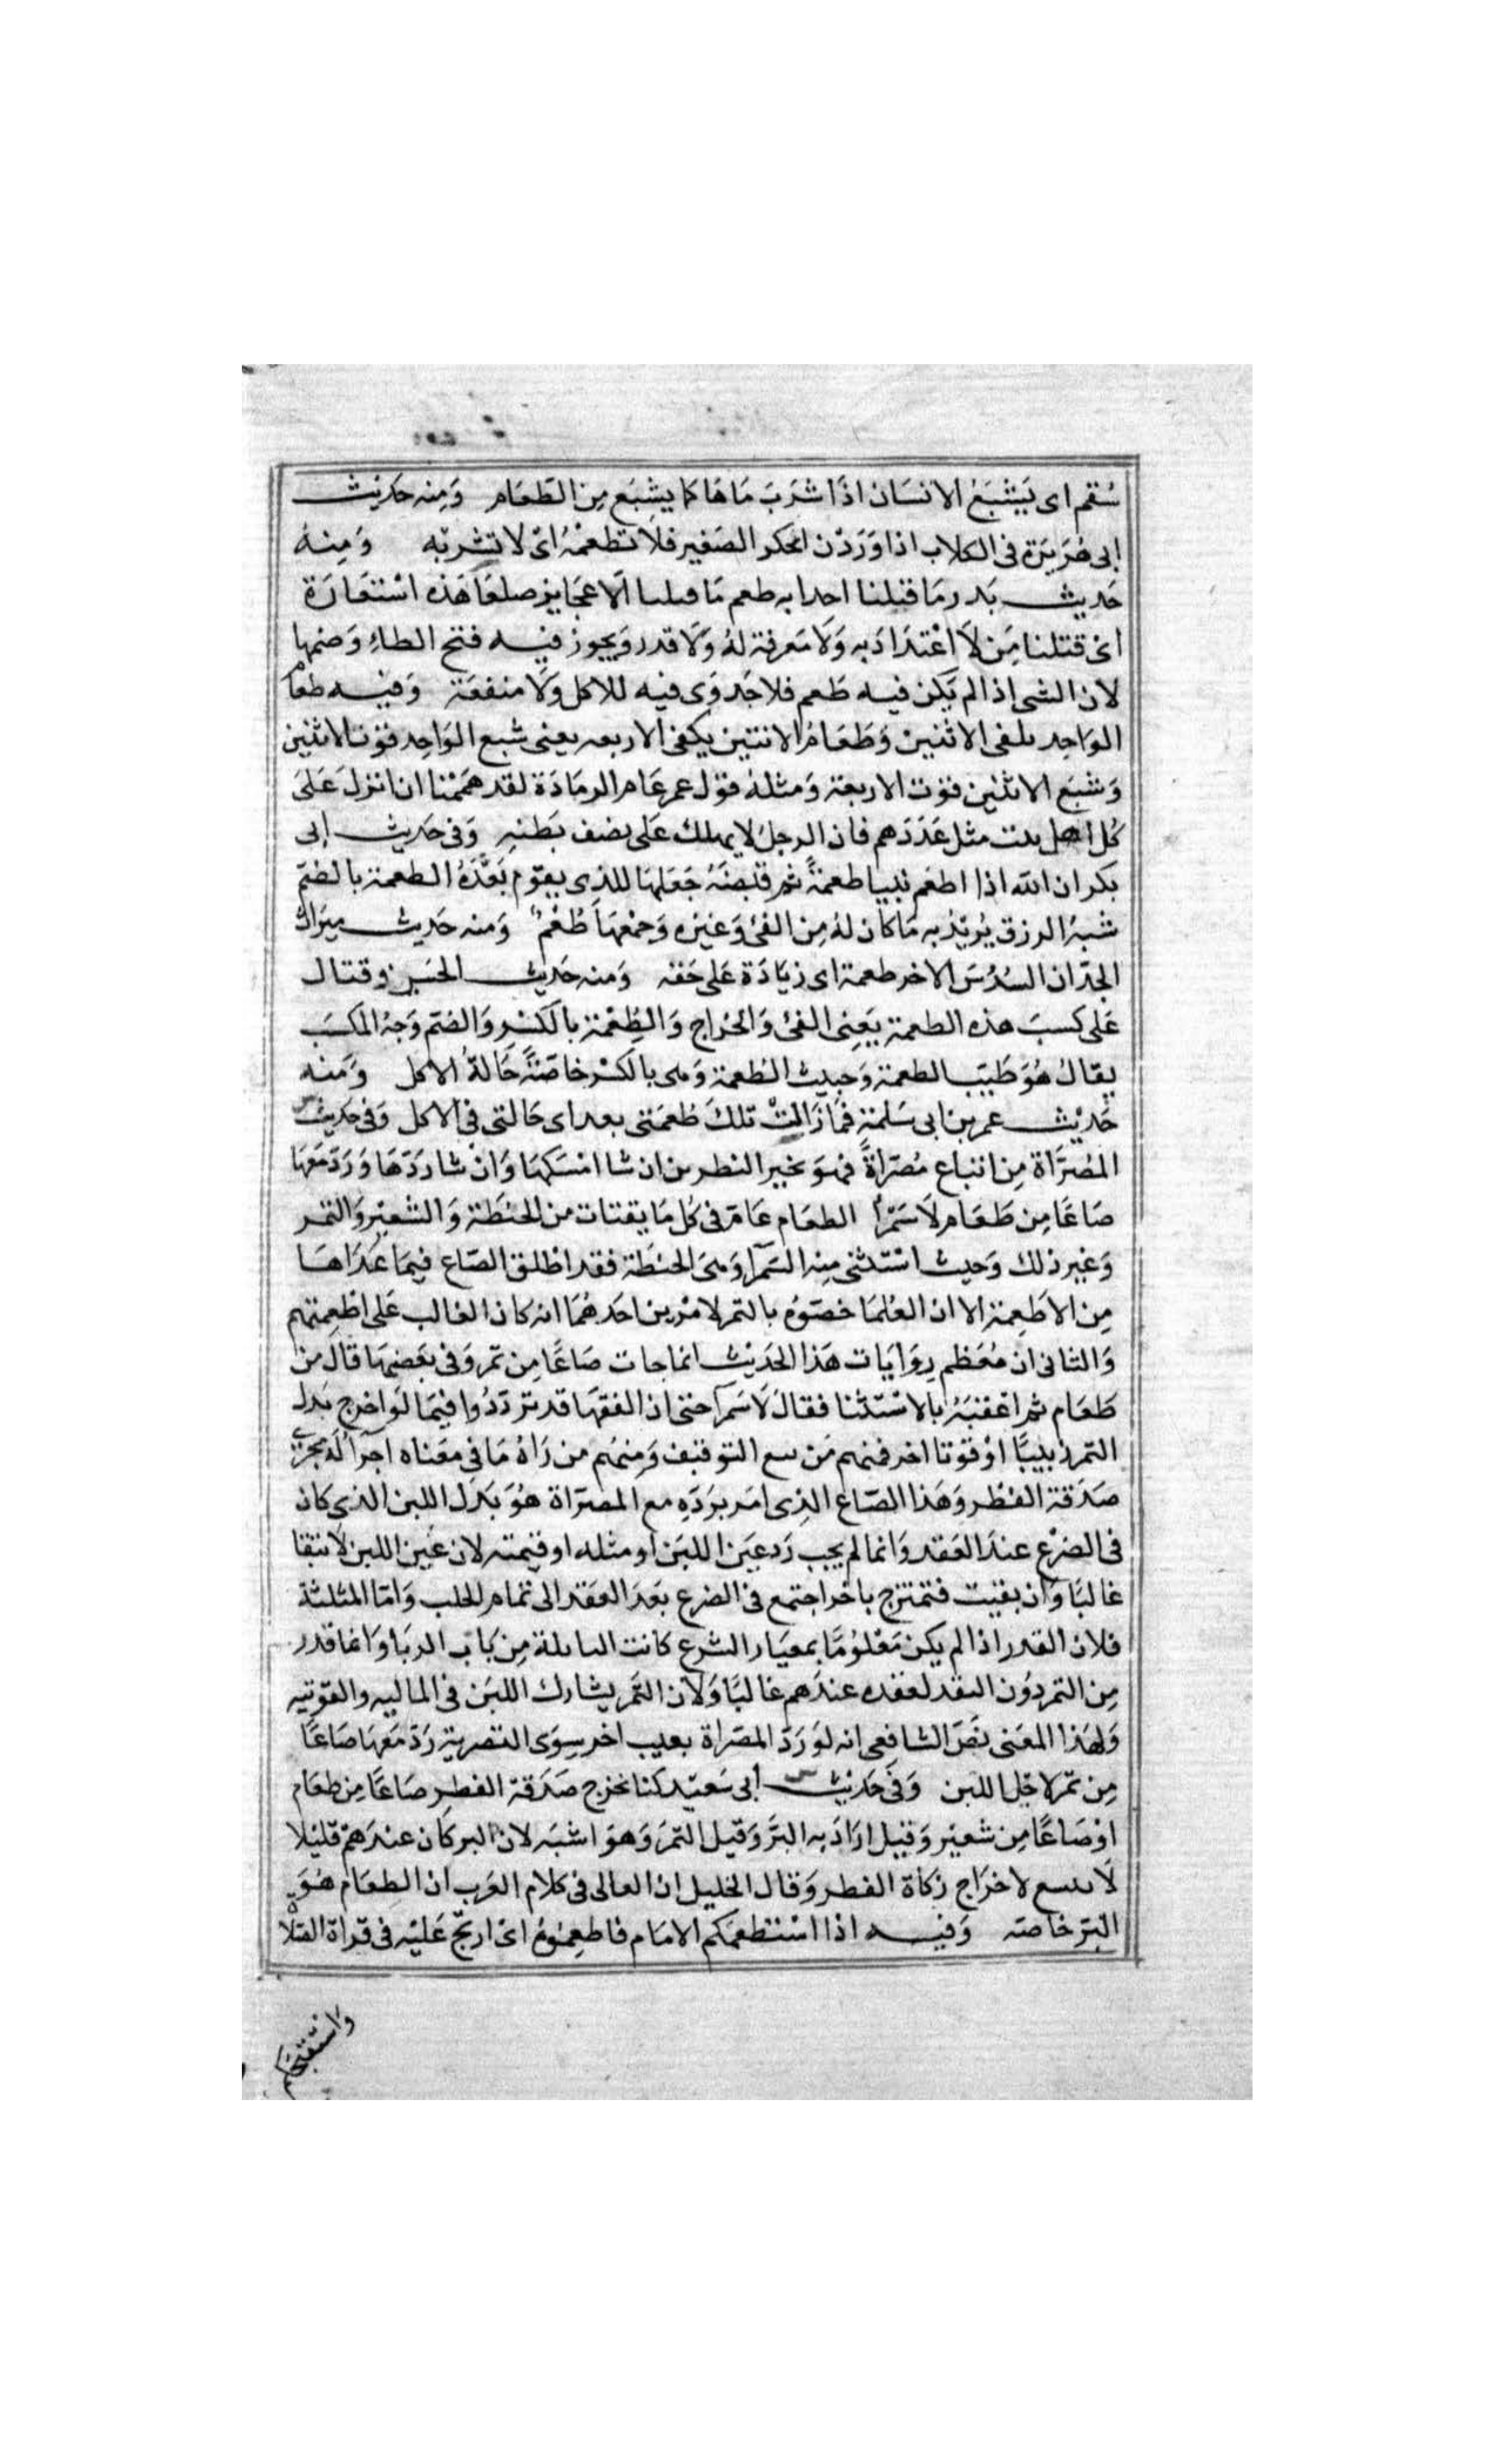 سُقم اى يَشْبَعُ الانسَان اذَا شرَبَ مَاهَا كما يشبَع مِن الطَعَام وَمِنه حَديث
ابى هُرَيرَة فى الكلاب اذا وَرَدْن الحكر الصَغير فلا تطعَمْهُ اىْ لا تشربْه وَمِنهُ
حَديث بَدر مَا قتلنا احدا به طعم مَا قتلنا الّا عجَايز صلعًا هَذه اسْتعَارَة
اىْ قتلنا مَن لاَ اعْتدَادَ به وَلَا مَعرفة لهُ وَلَا قدر وَيجوز فيه فتح الطاءِ وَضمها
لان الشى اذا لم يَكن فيه طَعم فلا جَدوَى فيه للاكل وَلَا منفعَة وَفيه طعَام
الوَاحِد يكفى الاثنين وَطَعَامُ الاثنين يكفى الاربعه يعنى شبع الوَاحِد قوت الاثنين
وَشبَع الاثنين قوت الاربعة وَمثلهُ قوْل عمر عَام الرمَادَة لقد همَمْنا ان انزلَ عَلَى
كُل اهل بيت مثل عَدَدَهم فان الرجل لا يهلك عَلى نصف بَطنهِ وَفى حَديث ابى
بكر ان الله اذا اطعَم نبيا طعمَةً ثم قبَضَهُ جَعَلهَا للذى يقوم بَعْدَهُ الطعمة بالضمّ
شبهُ الرزق يُريْدُ به مَا كان لهُ مِن الفئ وَغيره وَجمْعهَا طُعَمٌ وَمنه حَديث ميرَاث
الجدّ ان السُدُسَ الاخر طعمة اى زيَادَة عَلى حَقه وَمنه حَديث الحَسَن وقتال
عَلى كسبَ هذه الطعمة يَعنِى الفئ وَالخراج وَالطِعْمة بالكسْر وَالضم وَجهُ المكسَب
يقال هُوَ طَيّبَ الطعمة وَخبيث الطعمة وَهى بالكسْر خاصَةً حَالة الاكل وَمنه
حَديث عمر بن ابى سَلمَة فمَا زَالتْ تلكَ طُعمَتى بعد اى حَالتى فى الاكل وَفى حَديث
المُصَرَّاة مِن ابتاع مُصَرّاةً فهوَ بخير النظرين ان شا امْسَكهَا وَانْ شا رَدَهَا وَرَدّ مَعَهَا
صَاعًا مِن طَعَام لاَ سَمْرأ الطعَام عَام فى كُل مَا يقتات من الحنطَة وَالشعير وَالتمر
وَغير ذلك وَحيث اسْتثنى مِنه السَمرآ وَهىَ الحنطَة فقد اطلق الصّاع فيمَا عَدَاهَا
مِن الاَطعِمة الا ان العُلمَا خصّوهُ بالتمر لامْرين احَدهُمَا انه كان الغالب عَلى اطعِمَتهم
وَالثانى ان مُعَظم رِوَايَات هَذا الحَديث انما جات صَاعًا مِن تمر وَفى بَعَضهَا قال مِن
طَعَام ثم اعْقبَهُ بالاسْتثنا فقالَ لَا سَمرآ حتى ان الفقهَا قد ترَددُوا فيمَا لَو اخرج بَدل
التمر زبيبًا اوْ قوتا اخر فمنهم مَن تبع التوقيف وَمِنهُم من رَاهُ مَا فى معَناه اجرآ لهُ مجرى
صَدَقة الفطر وَهَذا الصّاع الذى امَر برَدّهِ مع المصَرّاة هُوَ بَدَل اللبن الذى كان
فى الضرْع عندَ العَقد وَانما لم يجب رَد عَين اللبَن او مثله او قيمته لان عَين اللبن لَا تبقا
غالبًا وَان بقيت فتمتزج باخر اجتمع فى الضرع بَعدَ العَقد الى تمام الحلب وَامّا المثلية
فلان القدر اذا لم يكن مَعْلُومًا بمعيَار الشرع كانت المقابلة مِن بَاب الربَا وَانما قدر
مِن التمر دوُن النقد لفقده عندَهم غالبًا وَلان التَمر يشارك اللبَن فى الماليه والقوتيه
وَلهَذا المعَنى نَصّ الشافعى انه لوَ رَدّ المصَرّاة بعيب اخر سِوَى التصرية رَدّ مَعَهَا صَاعًا
مِن تمر لاجْل اللبن وَفى حَديث ابى سَعيد كنا نخرج صَدَقة الفطر صَاعًا مِن طعَام
اوْ صَاعًا مِن شعير وَقيل ارَادَ به البرَّ وَقيل التمرَ وَهوَ اشبَه لان البر كان عندَهمْ قليْلا
لَا يتسع لاخرَاج زَكاة الفطر وَقال الخليل ان العالى فى كلام العَرب ان الطعَام هُوَ
البَر خاصّه وَفيه اذا اسْتَطعَمَكم الامَام فاطعِمُوهُ اىْ ارتجّ عَليْه فى قرَاة الصّلاة
واستفتحكم